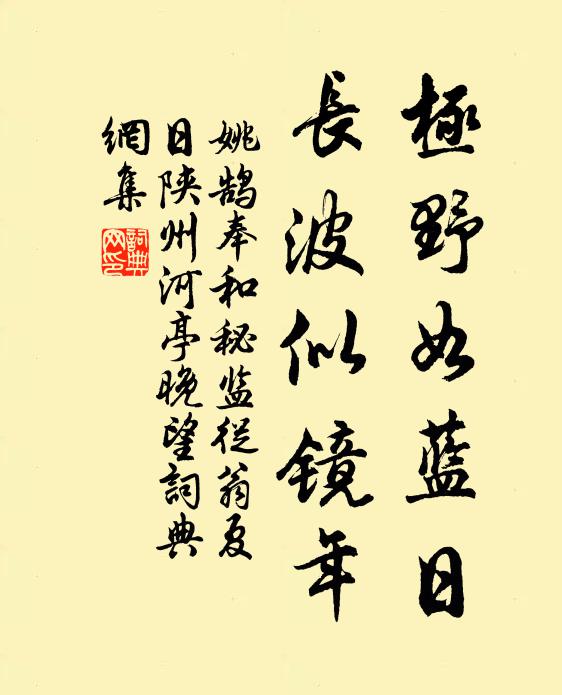 極野如藍日
長波似镜年
姚鹄奉和秘监從翁夏
日陕州河亭晚望詞典
網集
詞典
网印